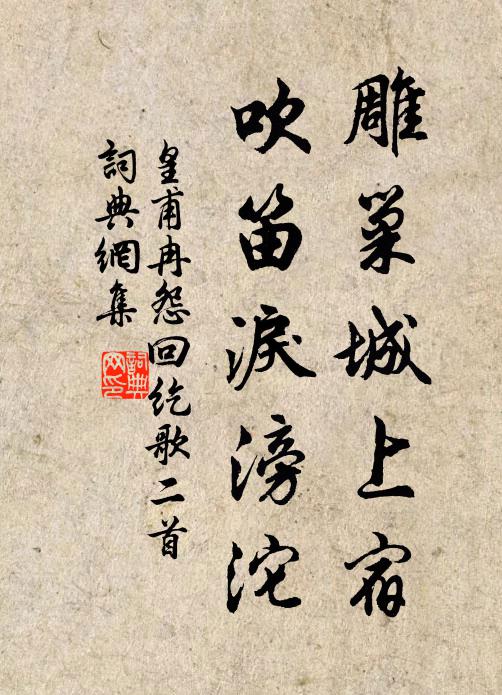 雕巢城上宿
吹笛淚滂沱
皇甫冉怨回紇歌二首
詞典網集
詞典网印